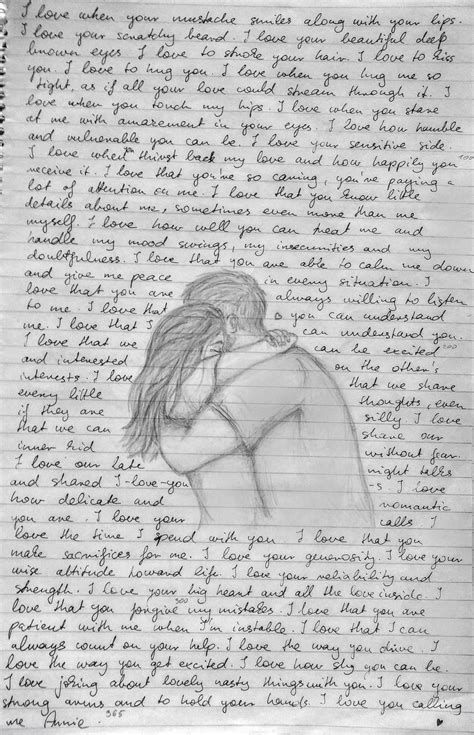 I love when your mustache smiles along with your lips.
I love your scratchy beard. I love your beautiful deep
brown eyes. I love to stroke your hair. I love to kiss
you. I love to hug you. I love when you hug me so
tight, as if all your love could stream through it. I
love when you touch my hips. I love when you stare
at me with amazement in your eyes. I love how humble
and vulnerable you can be. I love your sensitive side.
I love when thirst back my love and how happily you
receive it. I love that you're so caring, you're paying a
lot of attention on me. I love that you know little
details about me, sometimes even more than me
myself. I love how well you can treat me and
handle my mood swings, my insecurities and my
doubtfulness. I love that you are able to calm me down
and give me peace in every situation. I
love that you are always willing to listen
to me. I love that you can understand
me. I love that I can understand you.
I love that we can be excited
and interested on the other's
interests. I love that we share
every little thoughts, even
if they are silly. I love
that we can share our
inner kid without fear.
I love our late night talks
and shared I-love-you -s. I love
how delicate and romantic
you are. I love your calls. I
love the time I spend with you. I love that you
make sacrifices for me. I love your generosity. I love your
wise attitude toward life. I love your reliability and
strength. I love your big heart and all the love inside. I
love that you forgive my mistakes. I love that you are
patient with me when I'm instable. I love that I can
always count on your help. I love the way you drive. I
love the way you get excited. I love how shy you can be.
I love joking about lovely nasty things with you. I love your
strong arms and to hold your hands. I love you calling
me Annie. 365